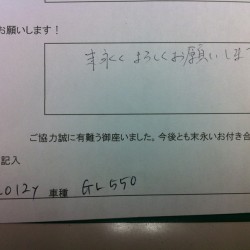 お願いします！
末永くよろしくお願いしま
ご協力誠に有難う御座いました。今後とも末永いお付き合
記入
2012y 車種 GL550